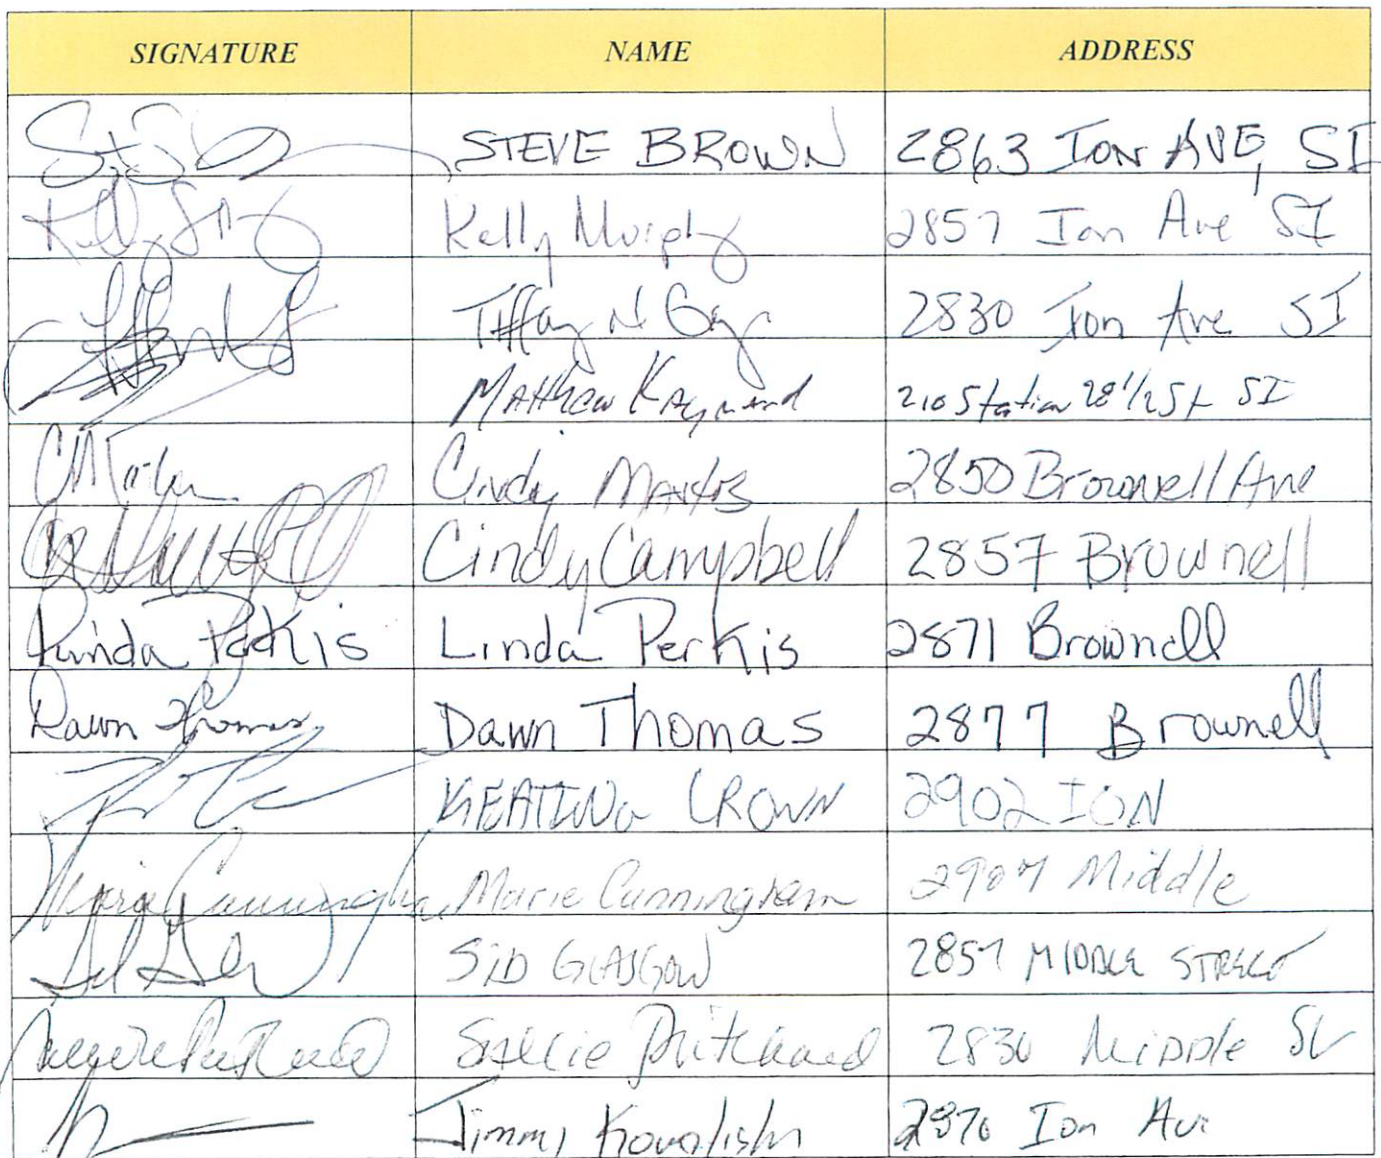 SIGNATURE NAME ADDRESS
STEVE BROWN 2863 ION AVE, SI
Kelly Murphy 2857 Ion Ave SI
Tiffany N 2830 Ion Ave SI
Matthew 210 Station 28 1/2 St SI
Cindy 2850 Brownell Ave
Cindy Campbell 2857 Brownell
Linda Perkis Linda Perkis 2871 Brownell
Dawn Thomas Dawn Thomas 2877 Brownell
KEATING CROWN 2902 ION
Marie Cunningham Marie Cunningham 2907 Middle
SID GLASGOW 2857 MIDDLE STREET
Pritchard 2830 MIDDLE St
Jimmy 2870 Ion Ave